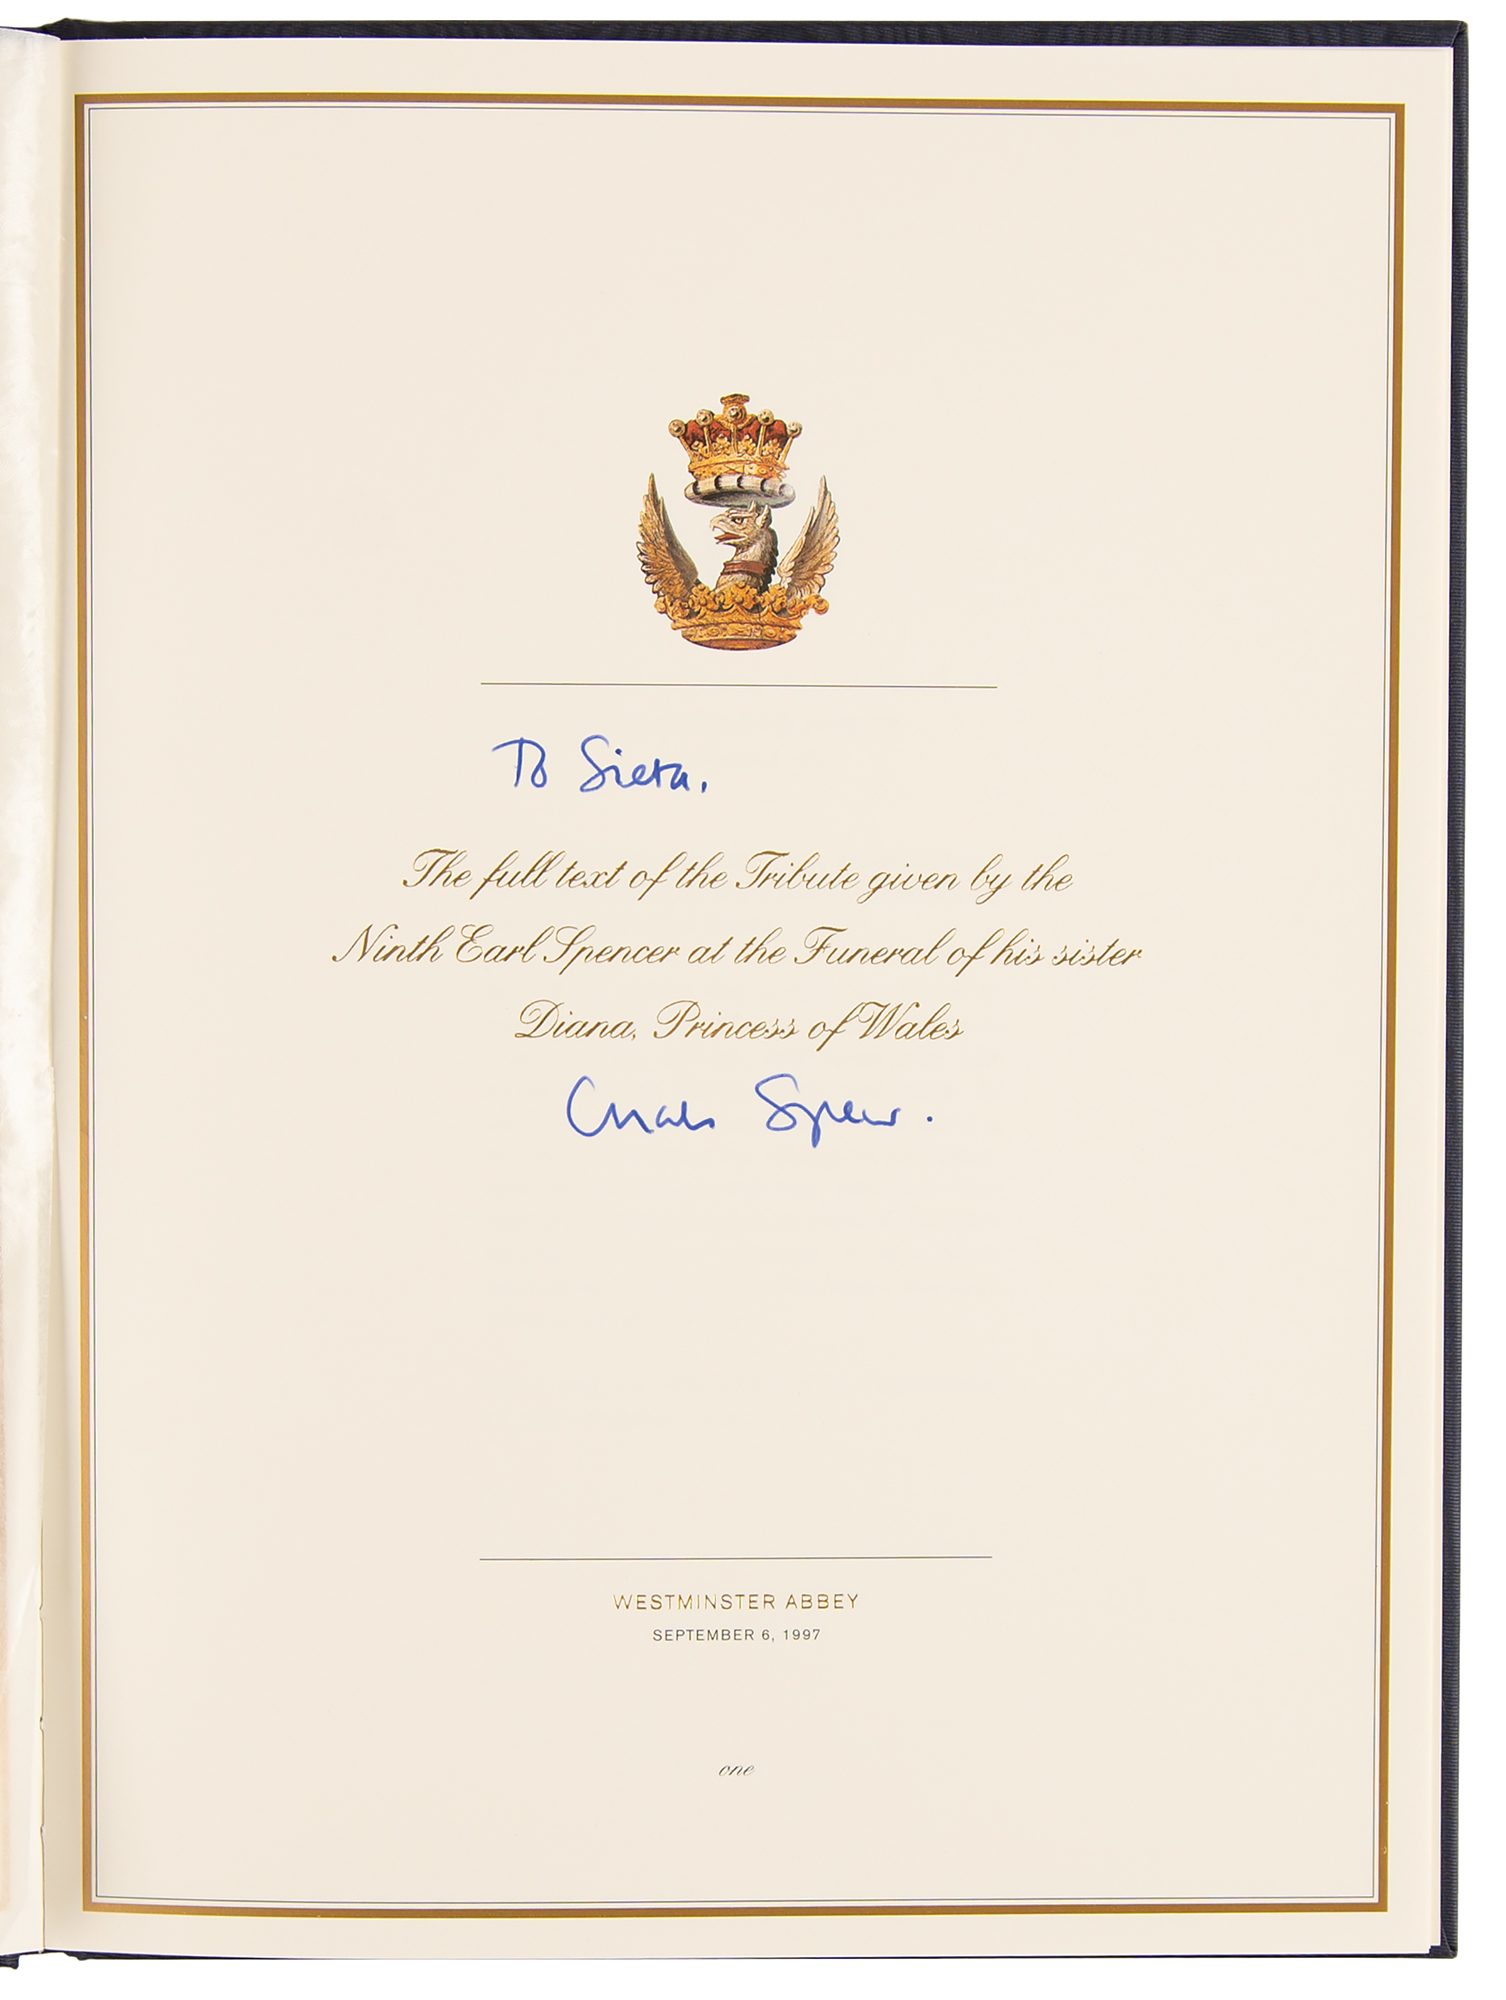 To Sieta.
The full text of the Tribute given by the
Ninth Earl Spencer at the Funeral of his sister
Diana, Princess of Wales
Charles Spencer.
WESTMINSTER ABBEY
SEPTEMBER 6, 1997
one